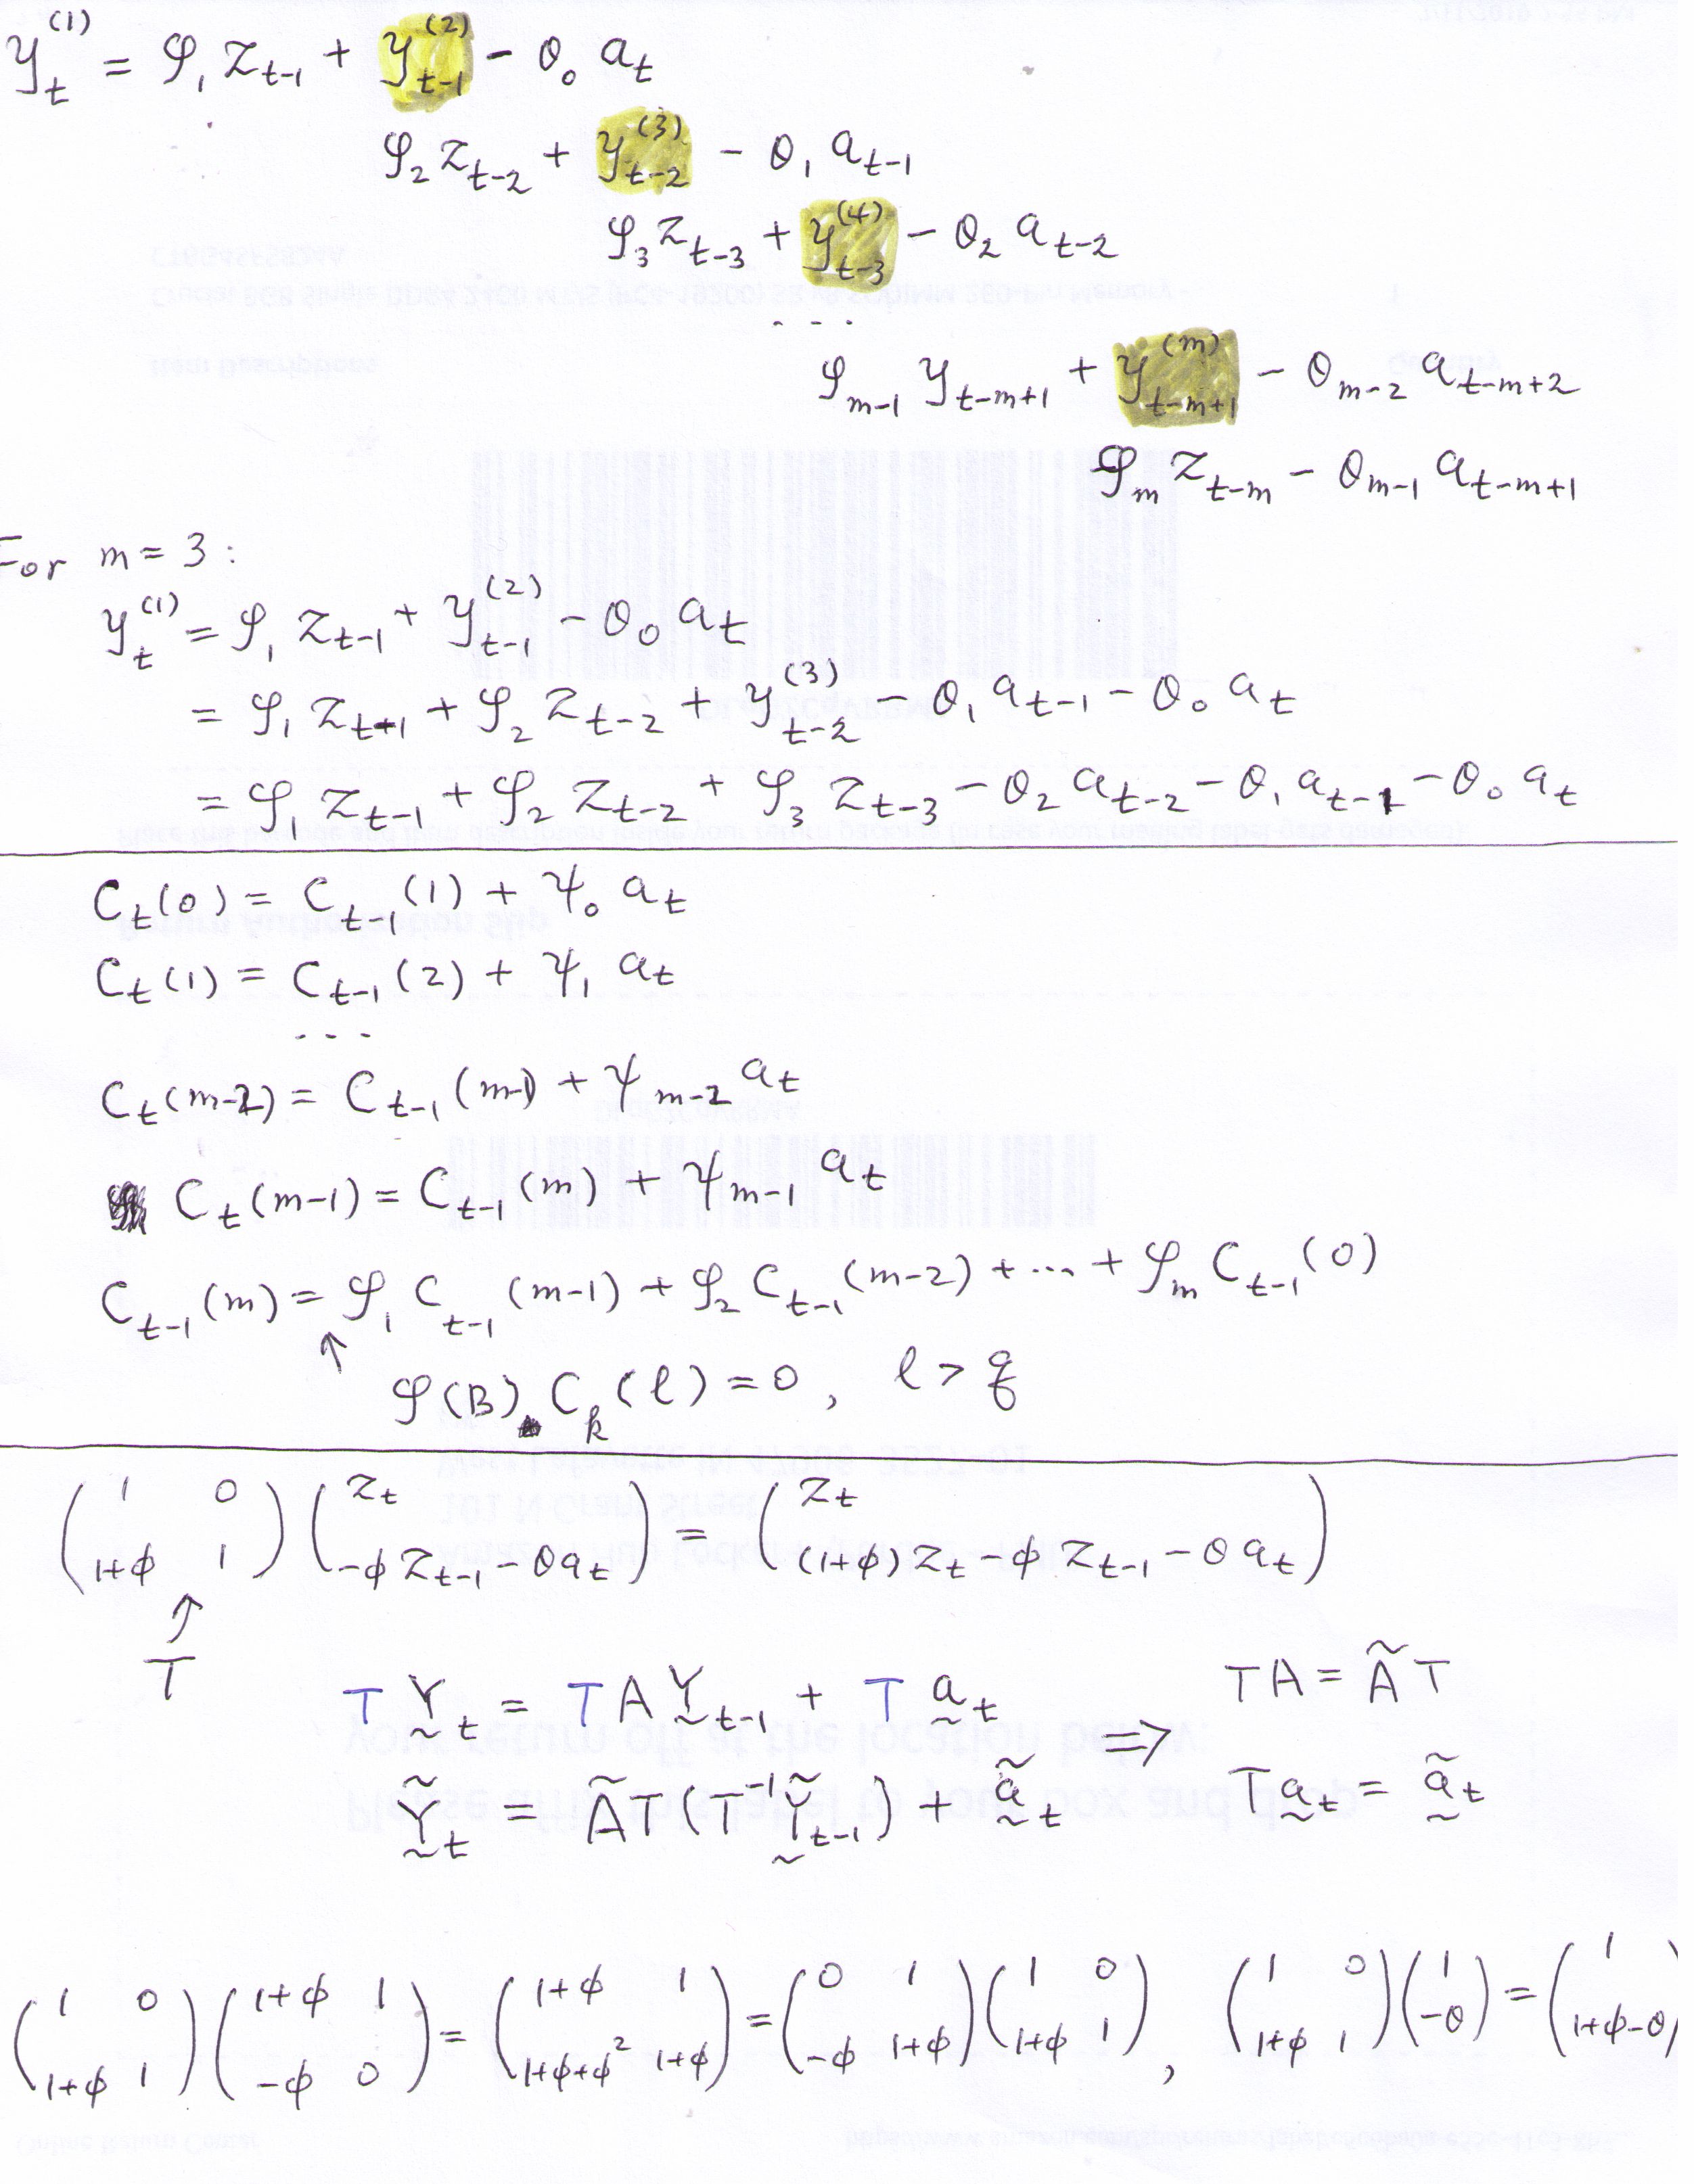 y_t^{(1)} = φ_1 z_{t-1} + y_{t-1}^{(2)} - θ_0 a_t
φ_2 z_{t-2} + y_{t-2}^{(3)} - θ_1 a_{t-1}
φ_3 z_{t-3} + y_{t-3}^{(4)} - θ_2 a_{t-2}
...
φ_{m-1} y_{t-m+1} + y_{t-m+1}^{(m)} - θ_{m-2} a_{t-m+2}
φ_m z_{t-m} - θ_{m-1} a_{t-m+1}
For m = 3 :
y_t^{(1)} = φ_1 z_{t-1} + y_{t-1}^{(2)} - θ_0 a_t
= φ_1 z_{t+1} + φ_2 z_{t-2} + y_{t-2}^{(3)} - θ_1 a_{t-1} - θ_0 a_t
= φ_1 z_{t-1} + φ_2 z_{t-2} + φ_3 z_{t-3} - θ_2 a_{t-2} - θ_1 a_{t-1} - θ_0 a_t
C_t(0) = C_{t-1}(1) + ψ_0 a_t
C_t(1) = C_{t-1}(2) + ψ_1 a_t
...
C_t(m-2) = C_{t-1}(m-1) + ψ_{m-2} a_t
C_t(m-1) = C_{t-1}(m) + ψ_{m-1} a_t
C_{t-1}(m) = φ_1 C_{t-1}(m-1) + φ_2 C_{t-1}(m-2) + ... + φ_m C_{t-1}(0)
↑
φ(B) C_k(ℓ) = 0, ℓ > q
(1 0; 1+ϕ 1) (z_t; -ϕ z_{t-1} - θ a_t) = (z_t; (1+ϕ) z_t - ϕ z_{t-1} - θ a_t)
↑
T
T Y_t = T A Y_{t-1} + T a_t ⇒ TA = Ã T
Ỹ_t = Ã T (T^{-1} Ỹ_{t-1}) + ã_t T a_t = ã_t
(1 0; 1+ϕ 1) (1+ϕ 1; -ϕ 0) = (1+ϕ 1; 1+ϕ+ϕ^2 1+ϕ) = (0 1; -ϕ 1+ϕ) (1 0; 1+ϕ 1), (1 0; 1+ϕ 1) (1; -θ) = (1; 1+ϕ-θ)